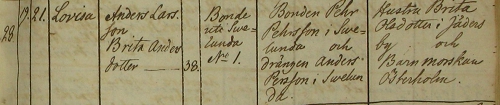 28 9. 21. Lovisa
Anders Lars-
son
Brita Anders
dotter — 38.
Bonde
uti Swe-
lunda
No 1.
Bonden Pehr
Pehrsson i Swe-
lunda och
drängen Anders
Persson i Swelun
da.
Kustra Brita
Olsdotter i Jäders
by och
Barnmorskan
Österholm.